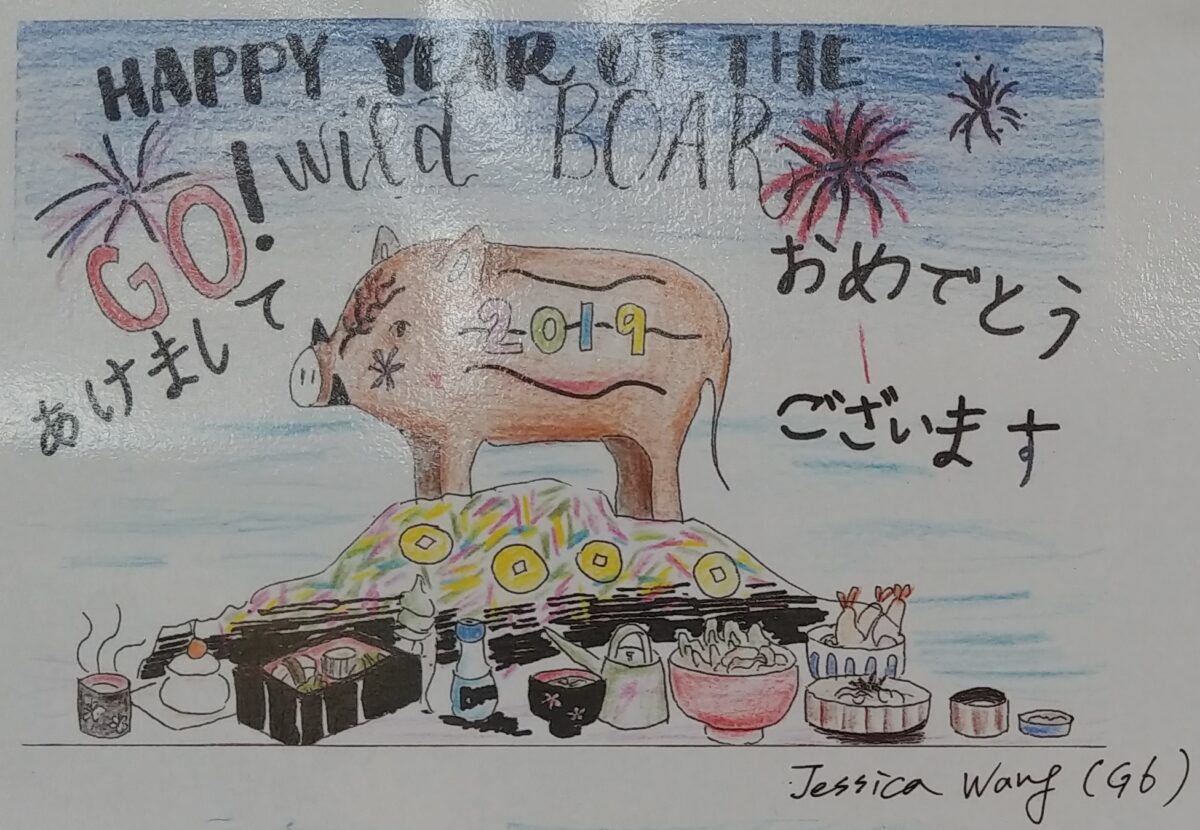 HAPPY YEAR OF THE
wild BOAR
GO!
あけまして
おめでとう
ございます
2019
Jessica Wang (G6)